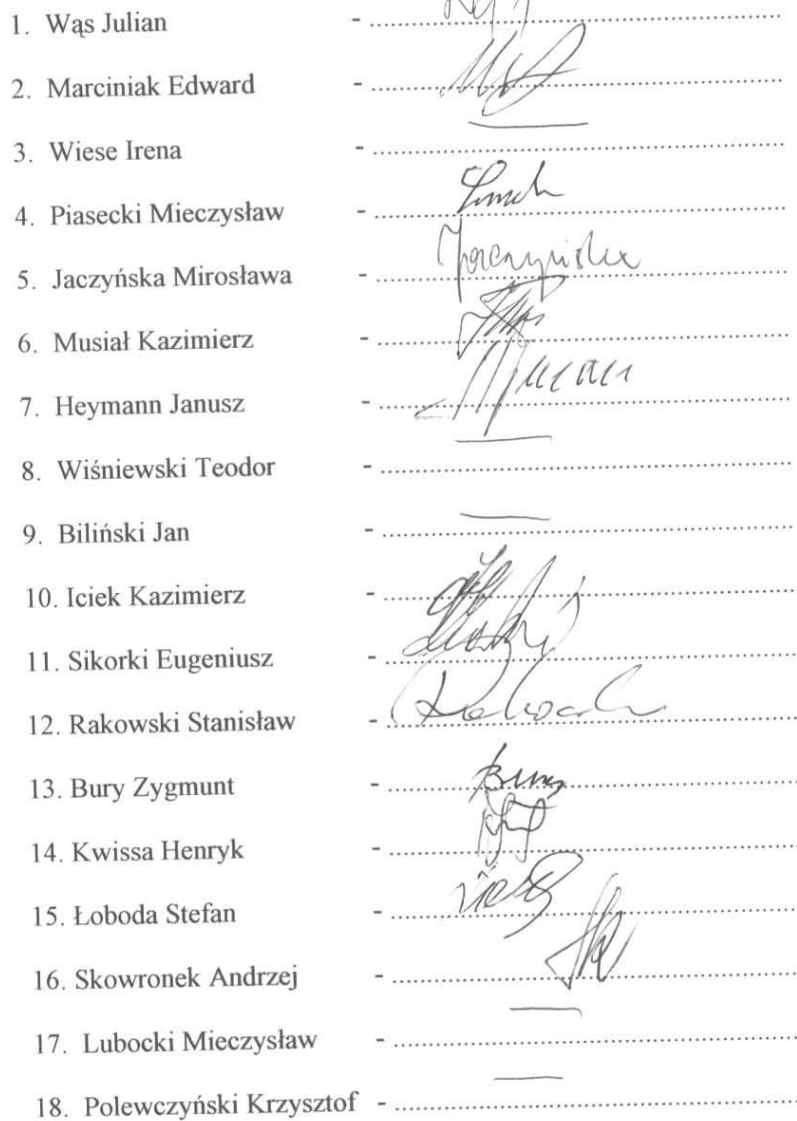 1. Wąs Julian - ..........
2. Marciniak Edward - ..........
3. Wiese Irena - ..........
4. Piasecki Mieczysław - ..........
5. Jaczyńska Mirosława - .......... Jaczyńska
6. Musiał Kazimierz - ..........
7. Heymann Janusz - ..........
8. Wiśniewski Teodor - ..........
9. Biliński Jan - ..........
10. Iciek Kazimierz - ..........
11. Sikorki Eugeniusz - ..........
12. Rakowski Stanisław - ..........
13. Bury Zygmunt - .......... Bury
14. Kwissa Henryk - ..........
15. Łoboda Stefan - ..........
16. Skowronek Andrzej - ..........
17. Lubocki Mieczysław - ..........
18. Polewczyński Krzysztof - ..........